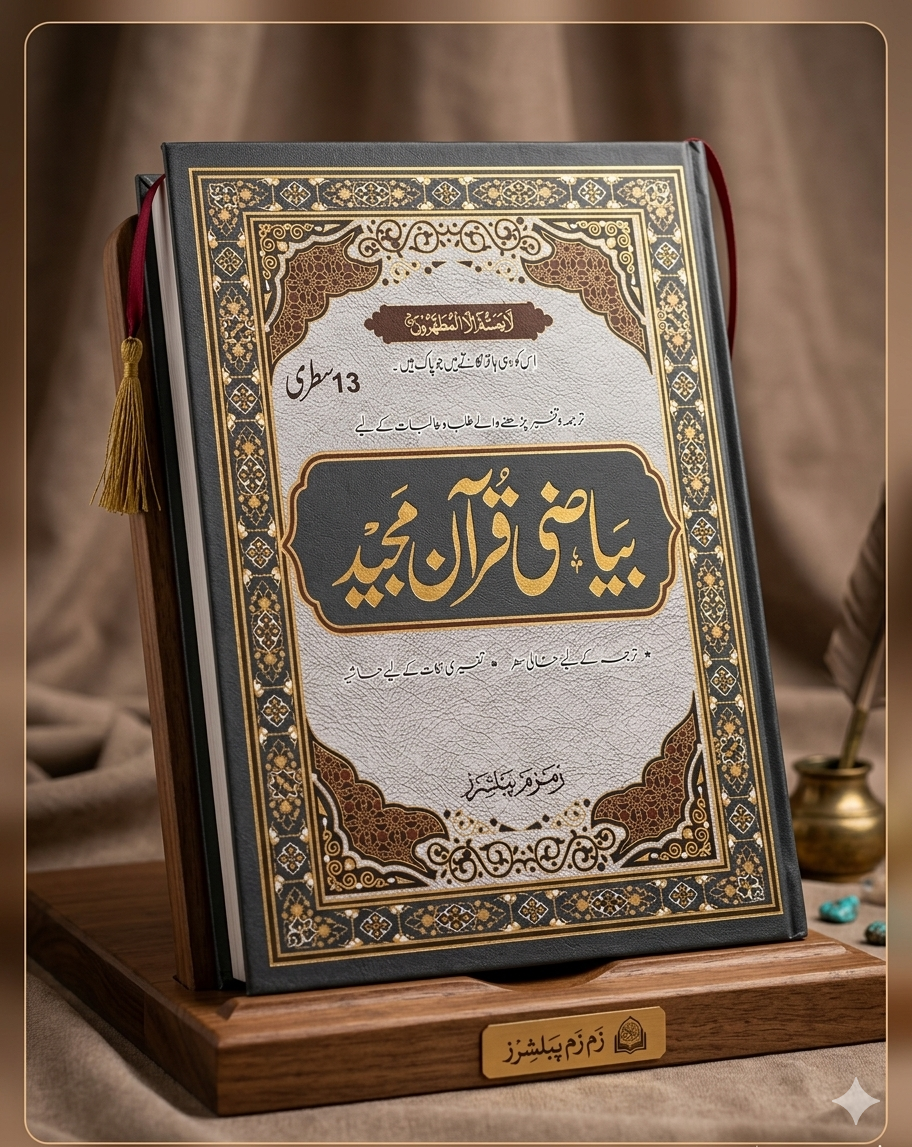 لَا يَمَسُّهٗ اِلَّا الْمُطَهَّرُوْنَ
اس کو وہی ہاتھ لگاتے ہیں جو پاک ہیں۔
13 سطری
ترجمہ و تفسیر پڑھنے والے طلبہ و طالبات کے لیے
بیاضی قُرآن مجید
* ترجمہ کے لیے خالی سطر * تفسیری نکات کے لیے حاشیہ
زمزم پبلشرز
زم زم پبلشرز